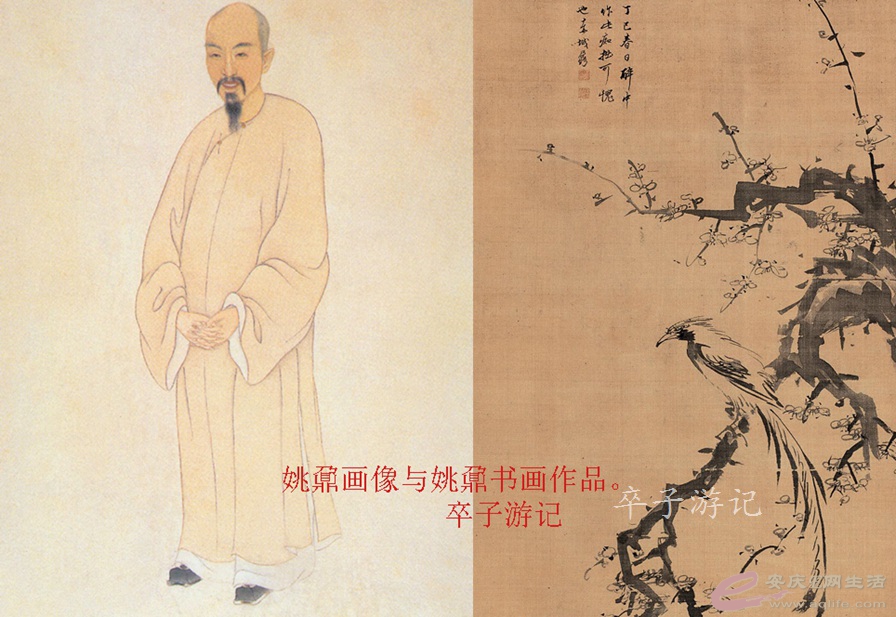 丁巳春日醉中
作此痴拙可愧
也
姚鼐画像与姚鼐书画作品。
卒子游记
卒子游记
安庆E网生活
www.aqlife.com